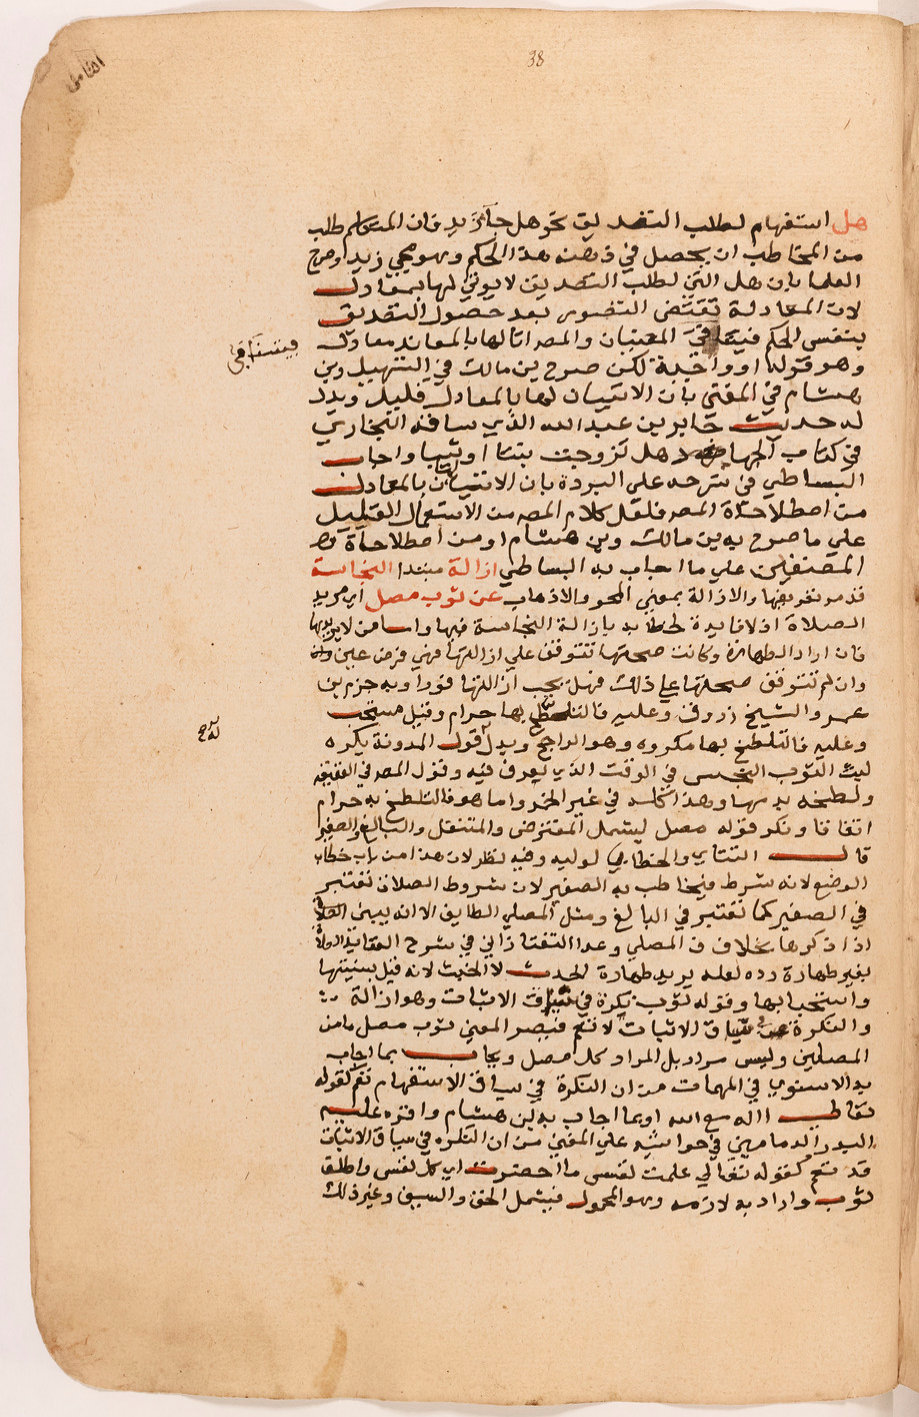 38
الثامن
هل استفهام لطلب التصديق نحو هل جا زيد فان المتكلم طلب
من المخاطب ان يحصل في ذهنه هذا الحكم وهو مجي زيد وصرح
العلما بان هل التي لطلب التصديق لا يوتي لها بمعادل
لان المعادلة تقتضي التصور بعد حصول التصديق
بنفس الحكم فيتنافي المعنيان والمص اتا لها بالمعاند معادل
فيتنافي
وهو قوله او واجبة لكن صرح بن مالك في التسهيل وبن
هشام في المغني بان الاتيان لها بالمعادل قليل ويدل
له حديث جابر بن عبد الله الذي ساقه البخاري
في كتاب الجهاد هل تزوجت بكرا او ثيبا واجاب
البساطي في شرحه علي البردة بان الاتيان بالمعادل
من اصطلاحاة المص فلعل كلام المص من الاستعمال القليل
علي ما صرح به بن مالك وبن هشام او من اصطلاحاة
المصنفين علي ما اجاب به البساطي ازالة مبتدا النجاسة
قد مر تعريفها والازالة بمعني المحو والاذهاب عن ثوب مصل اي مريد
الصلاة اذ لا فايدة لخطابه بازالة النجاسة فيها واما من لا يريدها
فان اراد الطهارة وكانت صحتها تتوقف علي ازالتها فهي فرض عين
وان لم تتوقف صحتها علي ذلك فهل يجب ازالتها فورا وبه جزم بن
عمر والشيخ زروق وعليه فالتلطخ بها حرام وقيل مستحب
وعليه فالتلطخ بها مكروه وهو الراجح ويدل قول المدونة يكره
له صح
لبث الثوب النجس في الوقت الذي يعرق فيه وقول المص في العقيقة
ولطخه بدمها وهذا كله في غير الخمر واما هو فالتلطخ به حرام
اتفاقا ونكر قوله مصل ليشمل المفترض والمتنفل والبالغ والصغير
قال التتاي والخطاب لوليه وفيه نظر لان هذا من باب خطاب
الوضع لانه شرط فيخاطب به الصغير لان شروط الصلاة تعتبر
في الصغير كما تعتبر في البالغ ومثل المصلي الطايف الا انه يبني
اذا ذكرها بخلاف المصلي وعد التفتازاني في شرح العقايد الصلاة
بغير طهارة ردة لعله يريد طهارة الحدث لا الخبث لانه قيل بسنيتها
واستحبابها وقوله ثوب نكرة في سياق الاثبات وهو ازالة
والنكرة في سياق الاثبات لا تعم فيصير المعني ثوب مصل ما من
المصلين وليس مراد بل المراد كل مصل ويجاب بما اجاب
به الاسنوي في المهمات من ان النكرة في سياق الاستفهام تعم كقوله
تعالي االه مع الله او بما اجاب به بن هشام واقره عليه
البدر الدماميني في حواشيه علي المغني من ان النكرة في سياق الاثبات
قد تعم كقوله تعالي علمت نفس ما احضرت اي كل نفس واطلق
ثوب واراد به لازمه وهو المحمول فيشمل الخف والسيف وغير ذلك